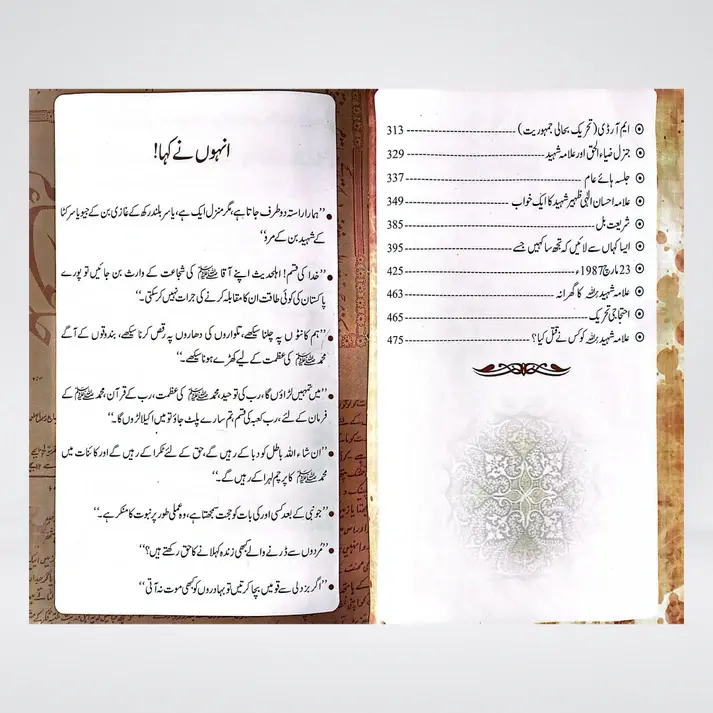 ایم آر ڈی (تحریک بحالی جمہوریت) ---------- 313
جنرل ضیاء الحق اور علامہ شہید ---------- 329
جلسہ ہائے عام ---------- 337
علامہ احسان الٰہی ظہیر شہید کا ایک خواب ---------- 349
شریعت بل ---------- 385
ایسا کہاں سے لائیں کہ تجھ سا کہیں جسے ---------- 395
23 مارچ 1987ء ---------- 425
علامہ شہید رحمہ اللہ کا گھرانہ ---------- 463
احتجاجی تحریک ---------- 465
علامہ شہید رحمہ اللہ کو کس نے قتل کیا؟ ---------- 475
انہوں نے کہا!
● ’’ہمارا راستہ دو طرف جاتا ہے، مگر منزل ایک ہے، یا سر بلند رکھ کے غازی بن کے جیو یا سر کٹا
کے شہید بن کے مرو‘‘
● ’’خدا کی قسم! اہلحدیث اپنے آقا ﷺ کی شجاعت کے وارث بن جائیں تو پورے
پاکستان کی کوئی طاقت ان کا مقابلہ کرنے کی جرات نہیں کر سکتی۔‘‘
● ’’ہم کانٹوں پہ چلنا سیکھے، تلواروں کی دھاروں پہ رقص کرنا سیکھے، بندوقوں کے آگے
محمد ﷺ کی عظمت کے لیے کھڑے ہونا سیکھے۔‘‘
● ’’میں تمہیں لڑاؤں گا، رب کی توحید، محمد ﷺ کی عظمت، رب کے قرآن، محمد ﷺ کے
فرمان کے لئے، رب کعبہ کی قسم، تم سارے پلٹ جاؤ تو میں اکیلا لڑوں گا۔‘‘
● ’’ان شاء اللہ باطل کو دبا کے رہیں گے، حق کے لئے ٹکرا کے رہیں گے اور کائنات میں
محمد ﷺ کا پرچم لہرا کے رہیں گے۔‘‘
● ’’جو نبی کے بعد کسی اور کی بات کو حجت سمجھتا ہے، وہ عملی طور پر نبوت کا منکر ہے۔‘‘
● ’’مُردوں سے ڈرنے والے کبھی زندہ کہلانے کا حق رکھتے ہیں؟‘‘
● ’’اگر بزدلی سے قومیں بچا کرتیں تو بہادروں کو کبھی موت نہ آتی‘‘